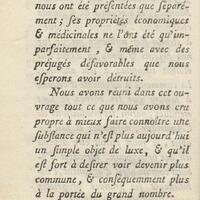 nous ont été présentées que séparé-
ment ; ses propriétés économiques
& médicinales ne l'ont été qu'im-
parfaitement, & même avec des
préjugés défavorables que nous
esperons avoir détruits.
Nous avons réuni dans cet ou-
vrage tout ce que nous avons cru
propre à mieux faire connoître une
substance qui n'est plus aujourd'hui
un simple objet de luxe, & qu'il
est fort à desirer voir devenir plus
commune, & conséquemment plus
à la portée du grand nombre.